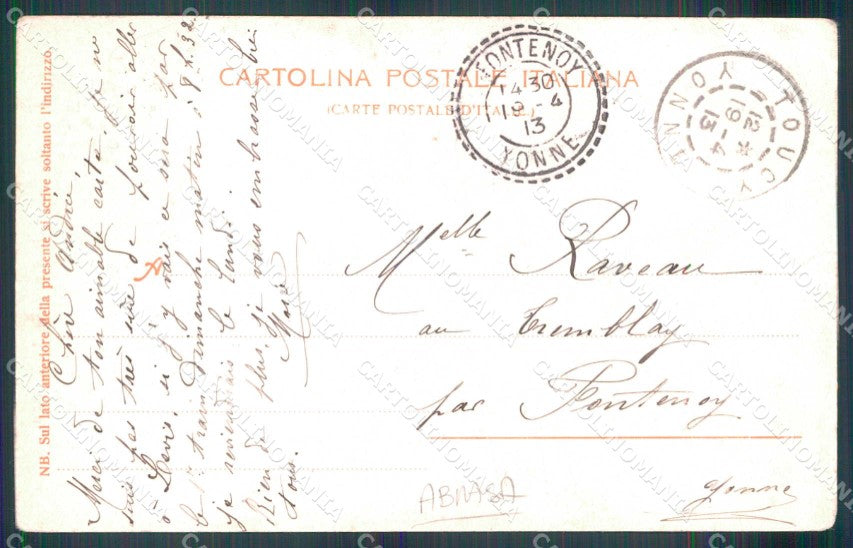 CARTOLINA POSTALE ITALIANA
(CARTE POSTALE D'ITALIE.)
NB. Sul lato anteriore della presente si scrive soltanto l'indirizzo.
FONTENOY
14 30
19 - 4
13
YONNE
TOUCY
12 *
19 - 4
13
YONNE
Chère Andrée,
Merci de ton aimable carte, je ne
suis pas très sûre de pouvoir aller
à si j'y vais ce sera par
le 1er train Dimanche matin à 8h.32
je reviendrais le Lundi.
Rien de plus, je vous embrasse bien
tous.
Marie
Melle Raveau
au Tremblay
par Fontenoy
Yonne
ABRASA
CARTOLINOMANIA